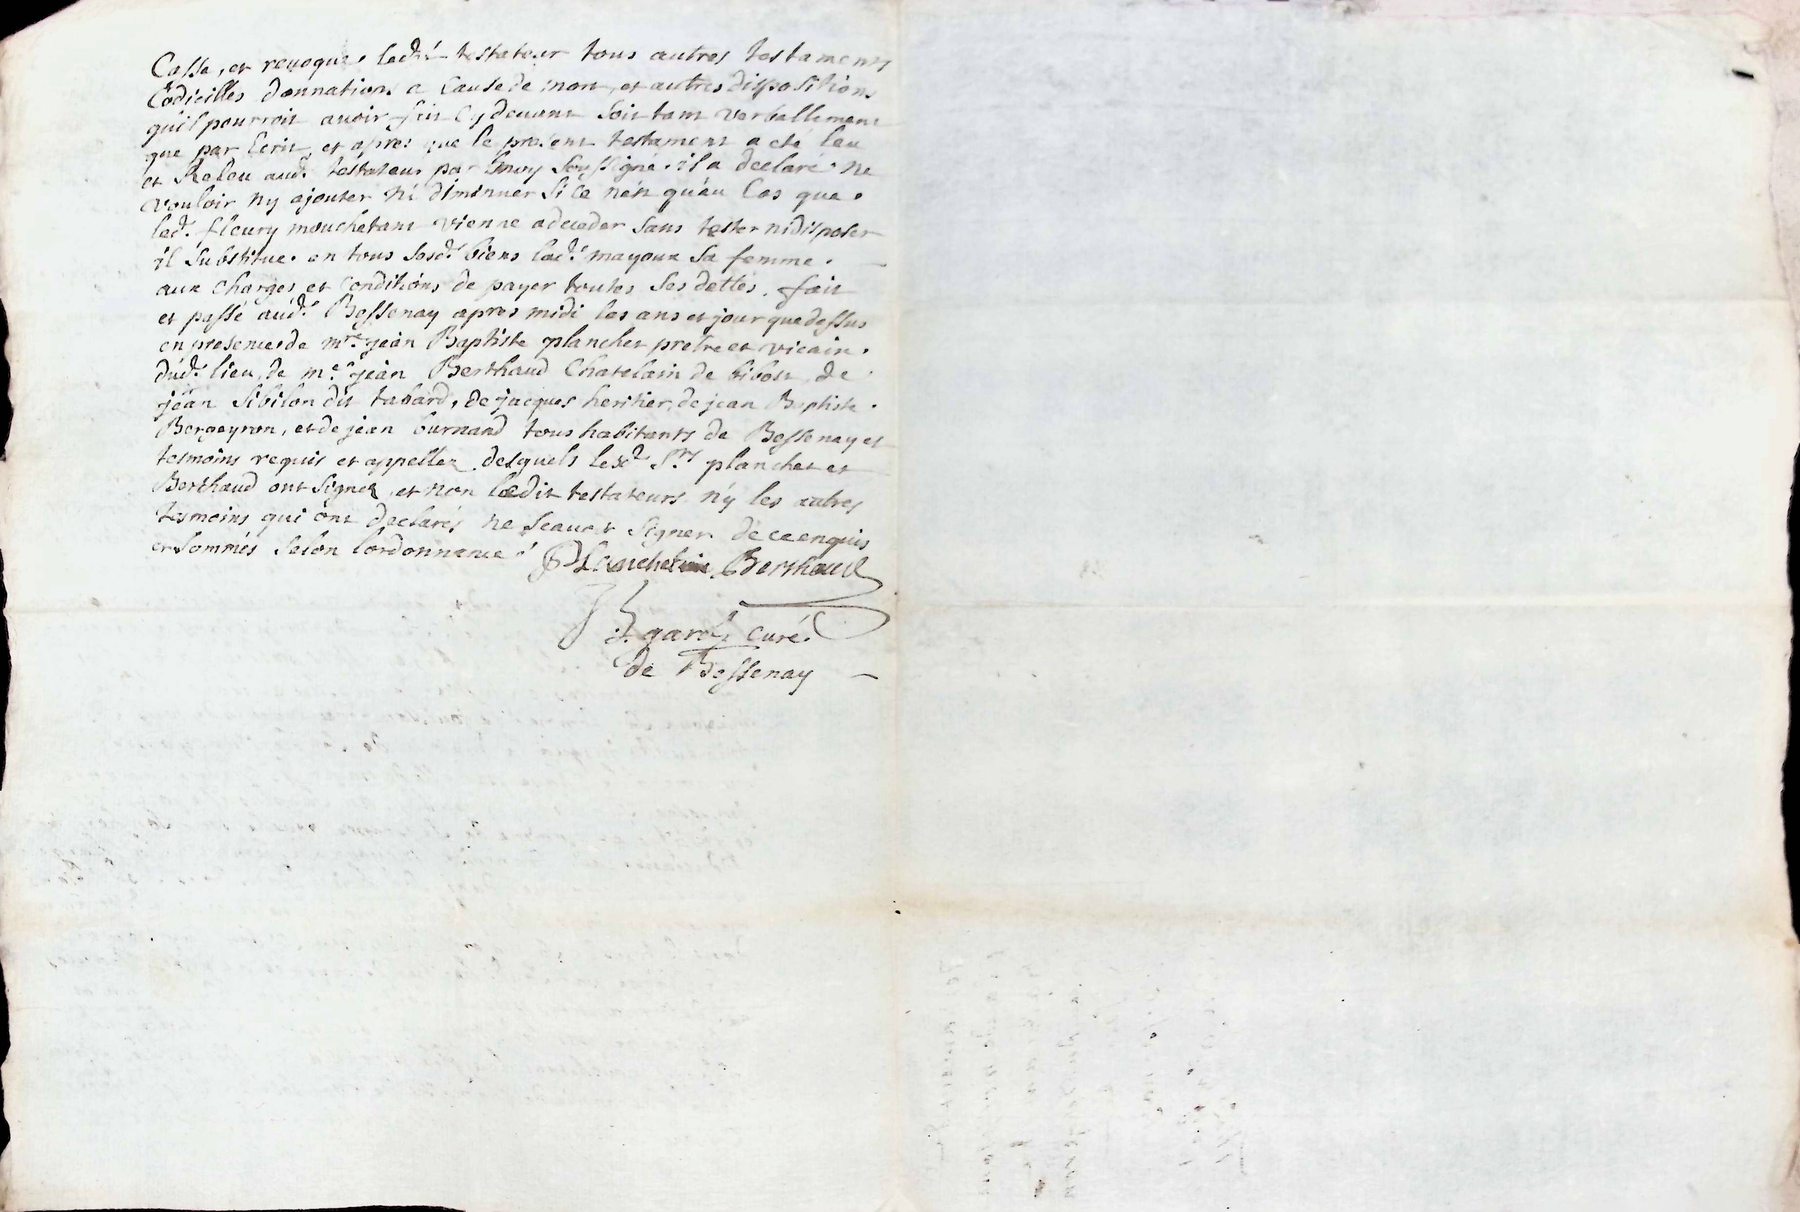 Casse, et revoque led.t testateur tous autres testaments
Codicilles donnations a cause de mort, et autres dispositions
qu'il pourroit avoir fait cy devant soit tant verballement
que par Ecrit, et apres que le present testament a eté leu
et Releu aud.t testateur par moy soussigné. il a declaré ne
vouloir ny ajouter ni diminuer si ce n'est qu'au Cas que
led.t fleury mouchetant vienne a deceder sans tester ni disposer
il substitue en tous sesd.t biens lad.t mayoux sa femme.
aux charges et Conditions de payer toutes ses dettes. fait
et passé aud.t Bessenay apres midi les ans et jour que dessus
en presence de m.re jean Baptiste planchet pretre et vicaire
dud.t lieu, de m.e jean Berthaud Chatelain de bibost, de
jean Sibilon dit tabard, de jacques heritier, de jean Baptiste
Bergeyron, et de jean burnand tous habitants de Bessenay et
tesmoins requis et appellez. desquels lesd.t S.rs planchet et
Berthaud ont signez, et non ledit testateurs n'y les autres
tesmoins qui ont declarés ne scavoir signer de ce enquis
et sommés selon lordonnance.
Planchet vic. Berthaud
curé
de Bessenay